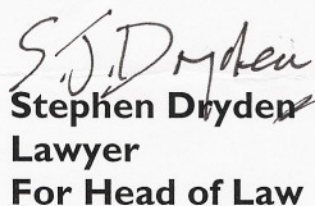 S.J. Dryden
Stephen Dryden
Lawyer
For Head of Law